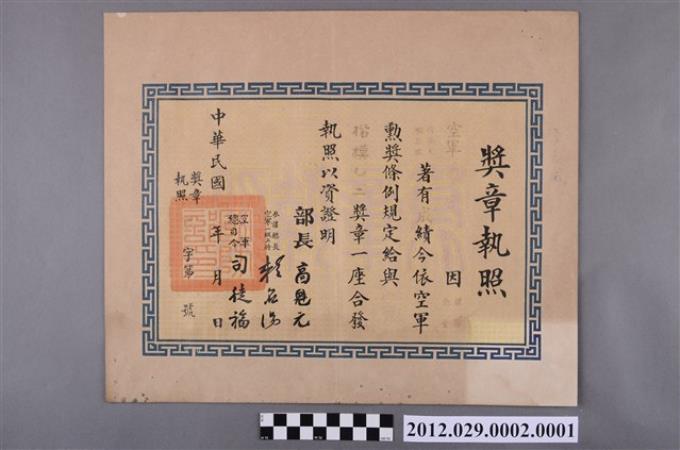 獎章執照
空軍
因
著有成績今依空軍
勲獎條例規定給與
楷模乙二獎章一座合發
執照以資證明
部長 高魁元
參謀總長
空軍一級上將 賴名湯
空軍
總司令 司徒福
中華民國 年 月 日
獎章
執照 字第 號
2012.029.0002.0001